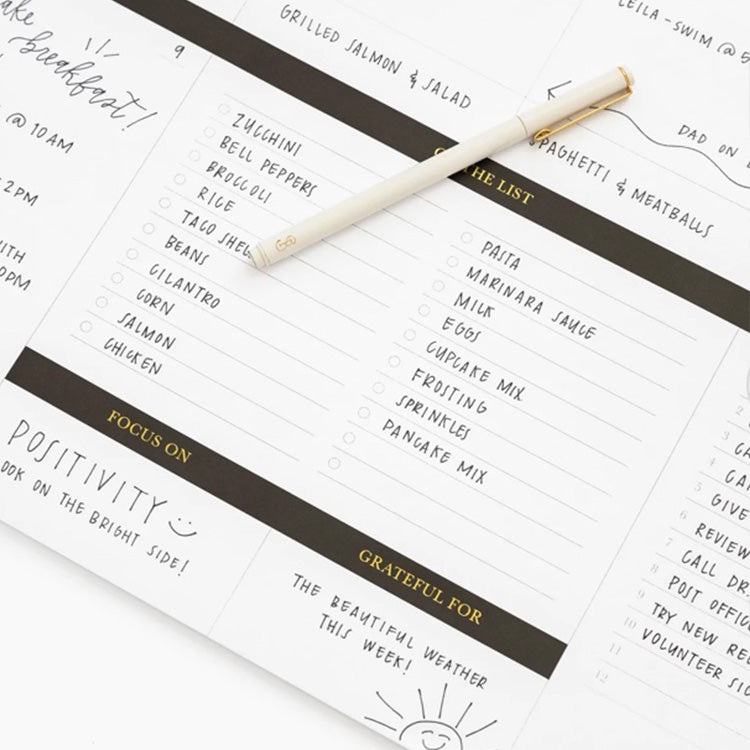 make
breakfast!
9
@ 10 AM
2 PM
GRILLED SALMON & SALAD
LEILA - SWIM @ 5
DAD ON
SPAGHETTI & MEATBALLS
THE LIST
ZUCCHINI
BELL PEPPERS
BROCCOLI
RICE
TACO SHEL
BEANS
CILANTRO
CORN
SALMON
CHICKEN
PASTA
MARINARA SAUCE
MILK
EGGS
CUPCAKE MIX
FROSTING
SPRINKLES
PANCAKE MIX
FOCUS ON
POSITIVITY
OOK ON THE BRIGHT SIDE!
GRATEFUL FOR
THE BEAUTIFUL WEATHER
THIS WEEK!
2
3
4
5 GIVE
6 REVIEW
7 CALL DR.
8 POST OFFIC
9 TRY NEW RE
10 VOLUNTEER SI
11
12